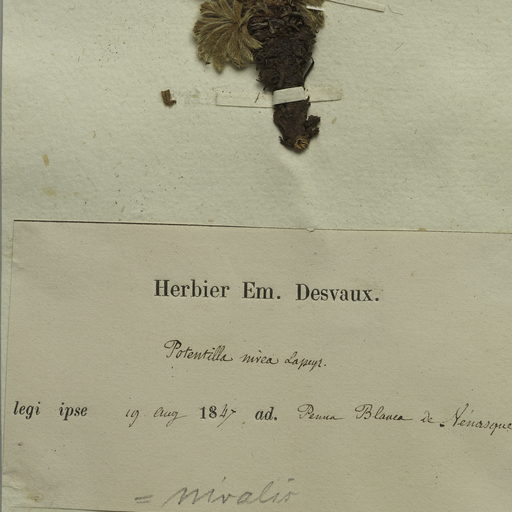 Herbier Em. Desvaux.
Potentilla nivea Lapeyr.
legi ipse 19 aug 1847 ad. Penna Blanca de Vénasque
= nivalis